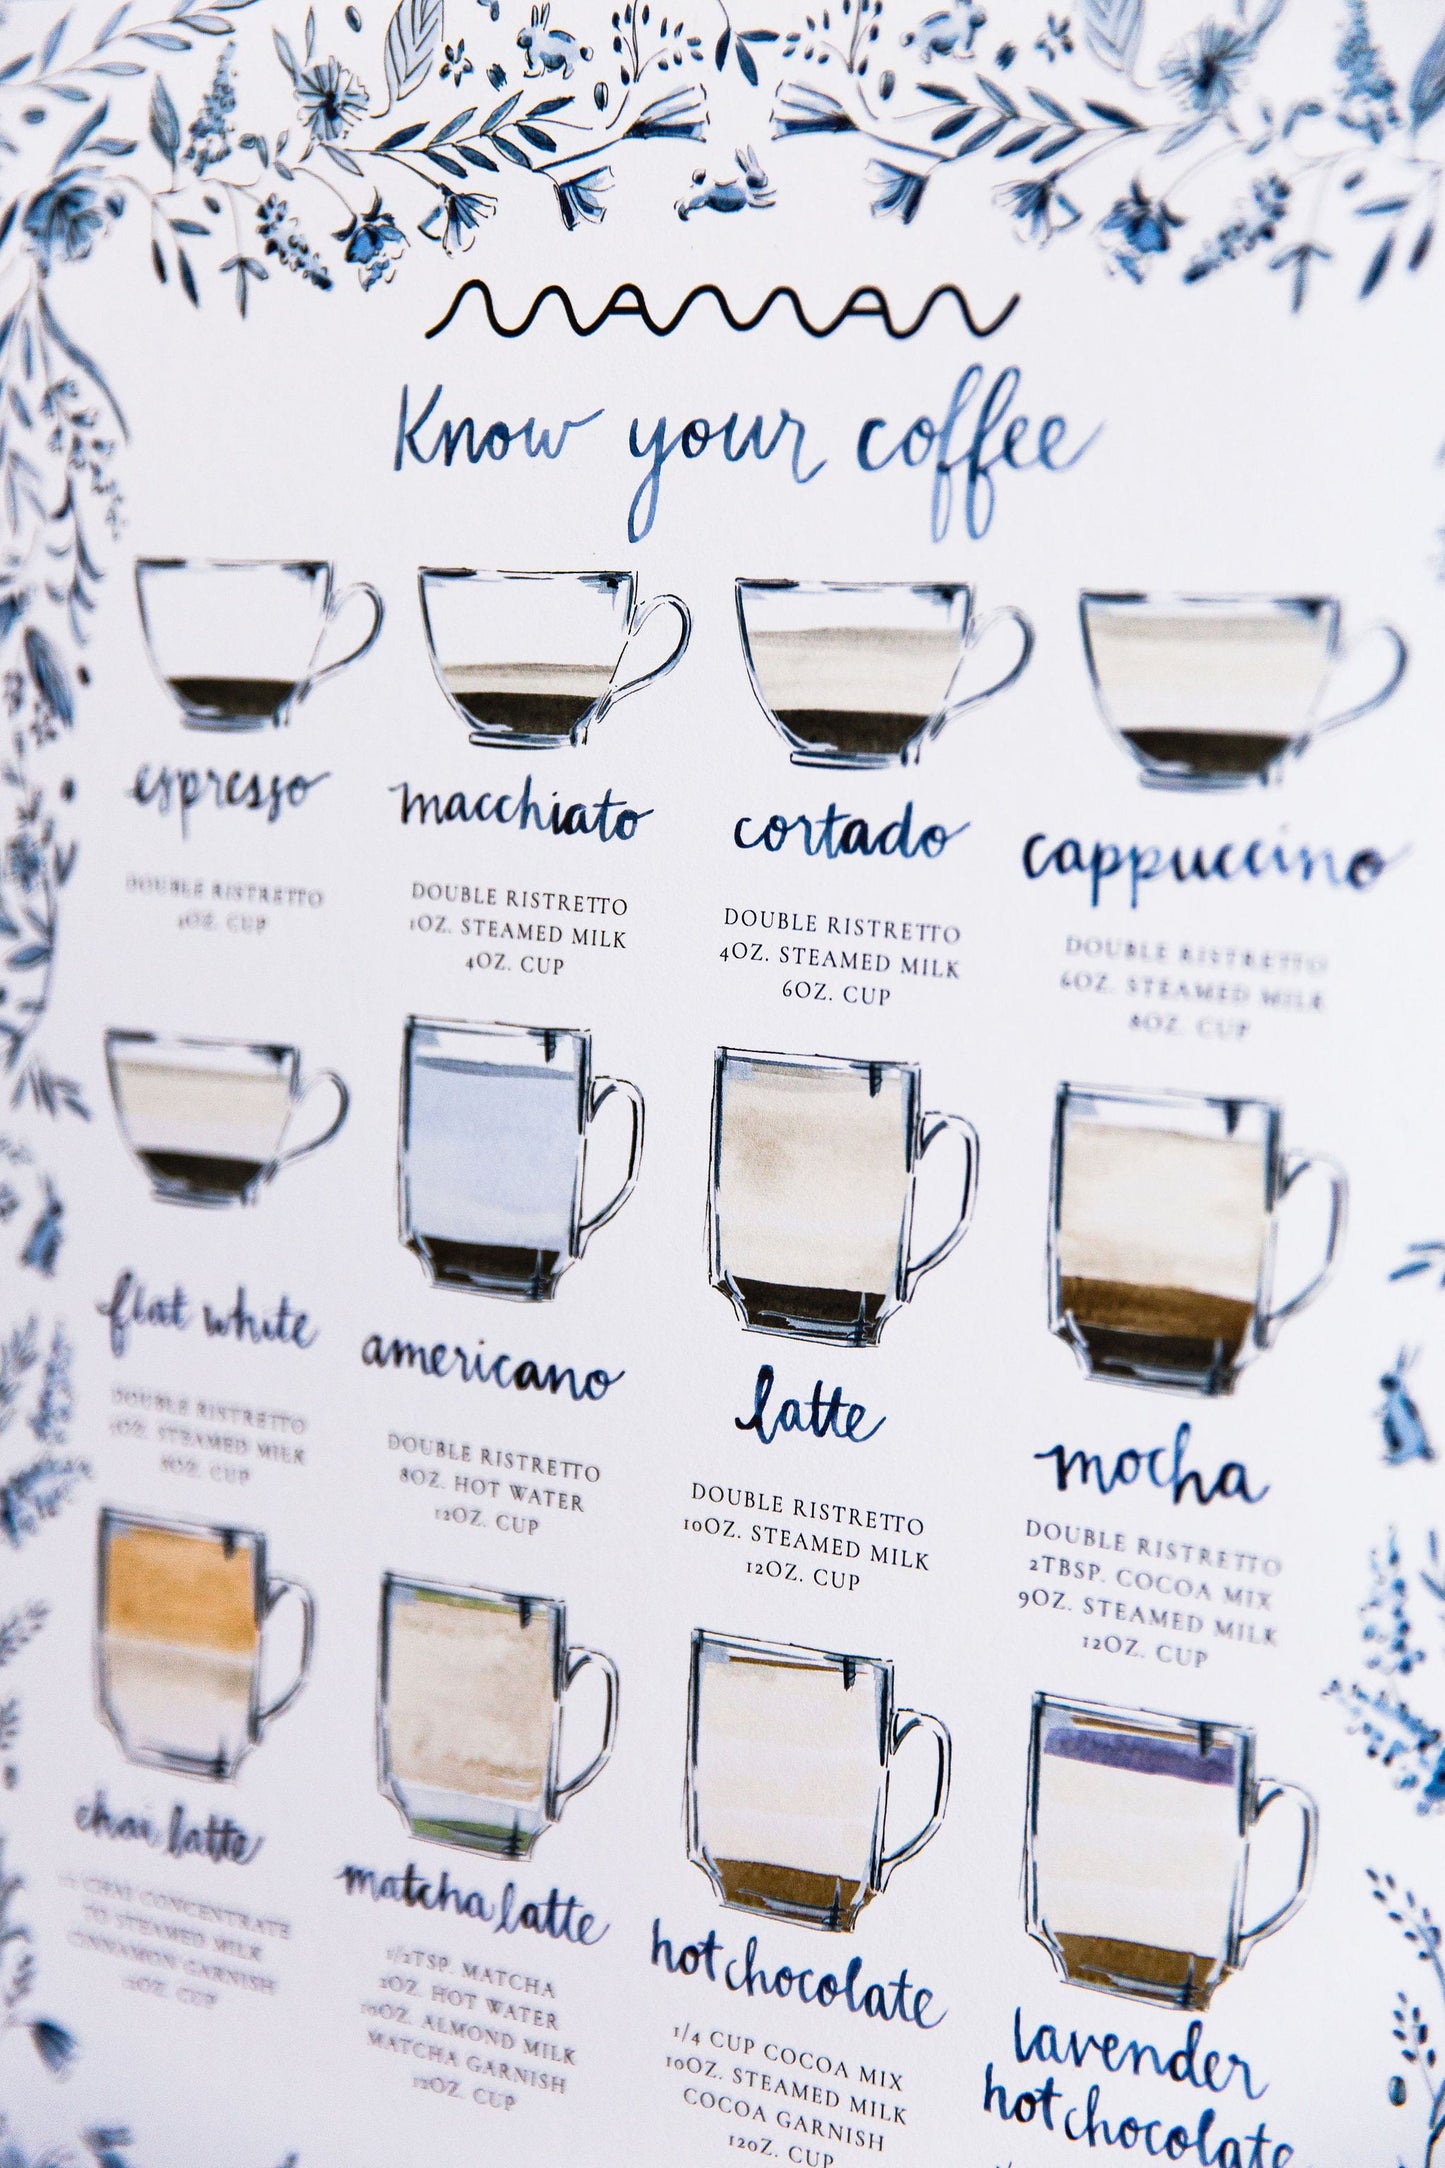 MAMAN
Know your coffee
espresso
DOUBLE RISTRETTO
4OZ. CUP
macchiato
DOUBLE RISTRETTO
1OZ. STEAMED MILK
4OZ. CUP
cortado
DOUBLE RISTRETTO
4OZ. STEAMED MILK
6OZ. CUP
cappuccino
DOUBLE RISTRETTO
6OZ. STEAMED MILK
8OZ. CUP
flat white
DOUBLE RISTRETTO
STEAMED MILK
CUP
americano
DOUBLE RISTRETTO
8OZ. HOT WATER
12OZ. CUP
latte
DOUBLE RISTRETTO
10OZ. STEAMED MILK
12OZ. CUP
mocha
DOUBLE RISTRETTO
2TBSP. COCOA MIX
9OZ. STEAMED MILK
12OZ. CUP
chai latte
CHAI CONCENTRATE
TO STEAMED MILK
CINNAMON GARNISH
12OZ. CUP
matcha latte
1/2TSP. MATCHA
2OZ. HOT WATER
10OZ. ALMOND MILK
MATCHA GARNISH
12OZ. CUP
hot chocolate
1/4 CUP COCOA MIX
10OZ. STEAMED MILK
COCOA GARNISH
12OZ. CUP
lavender
hot chocolate